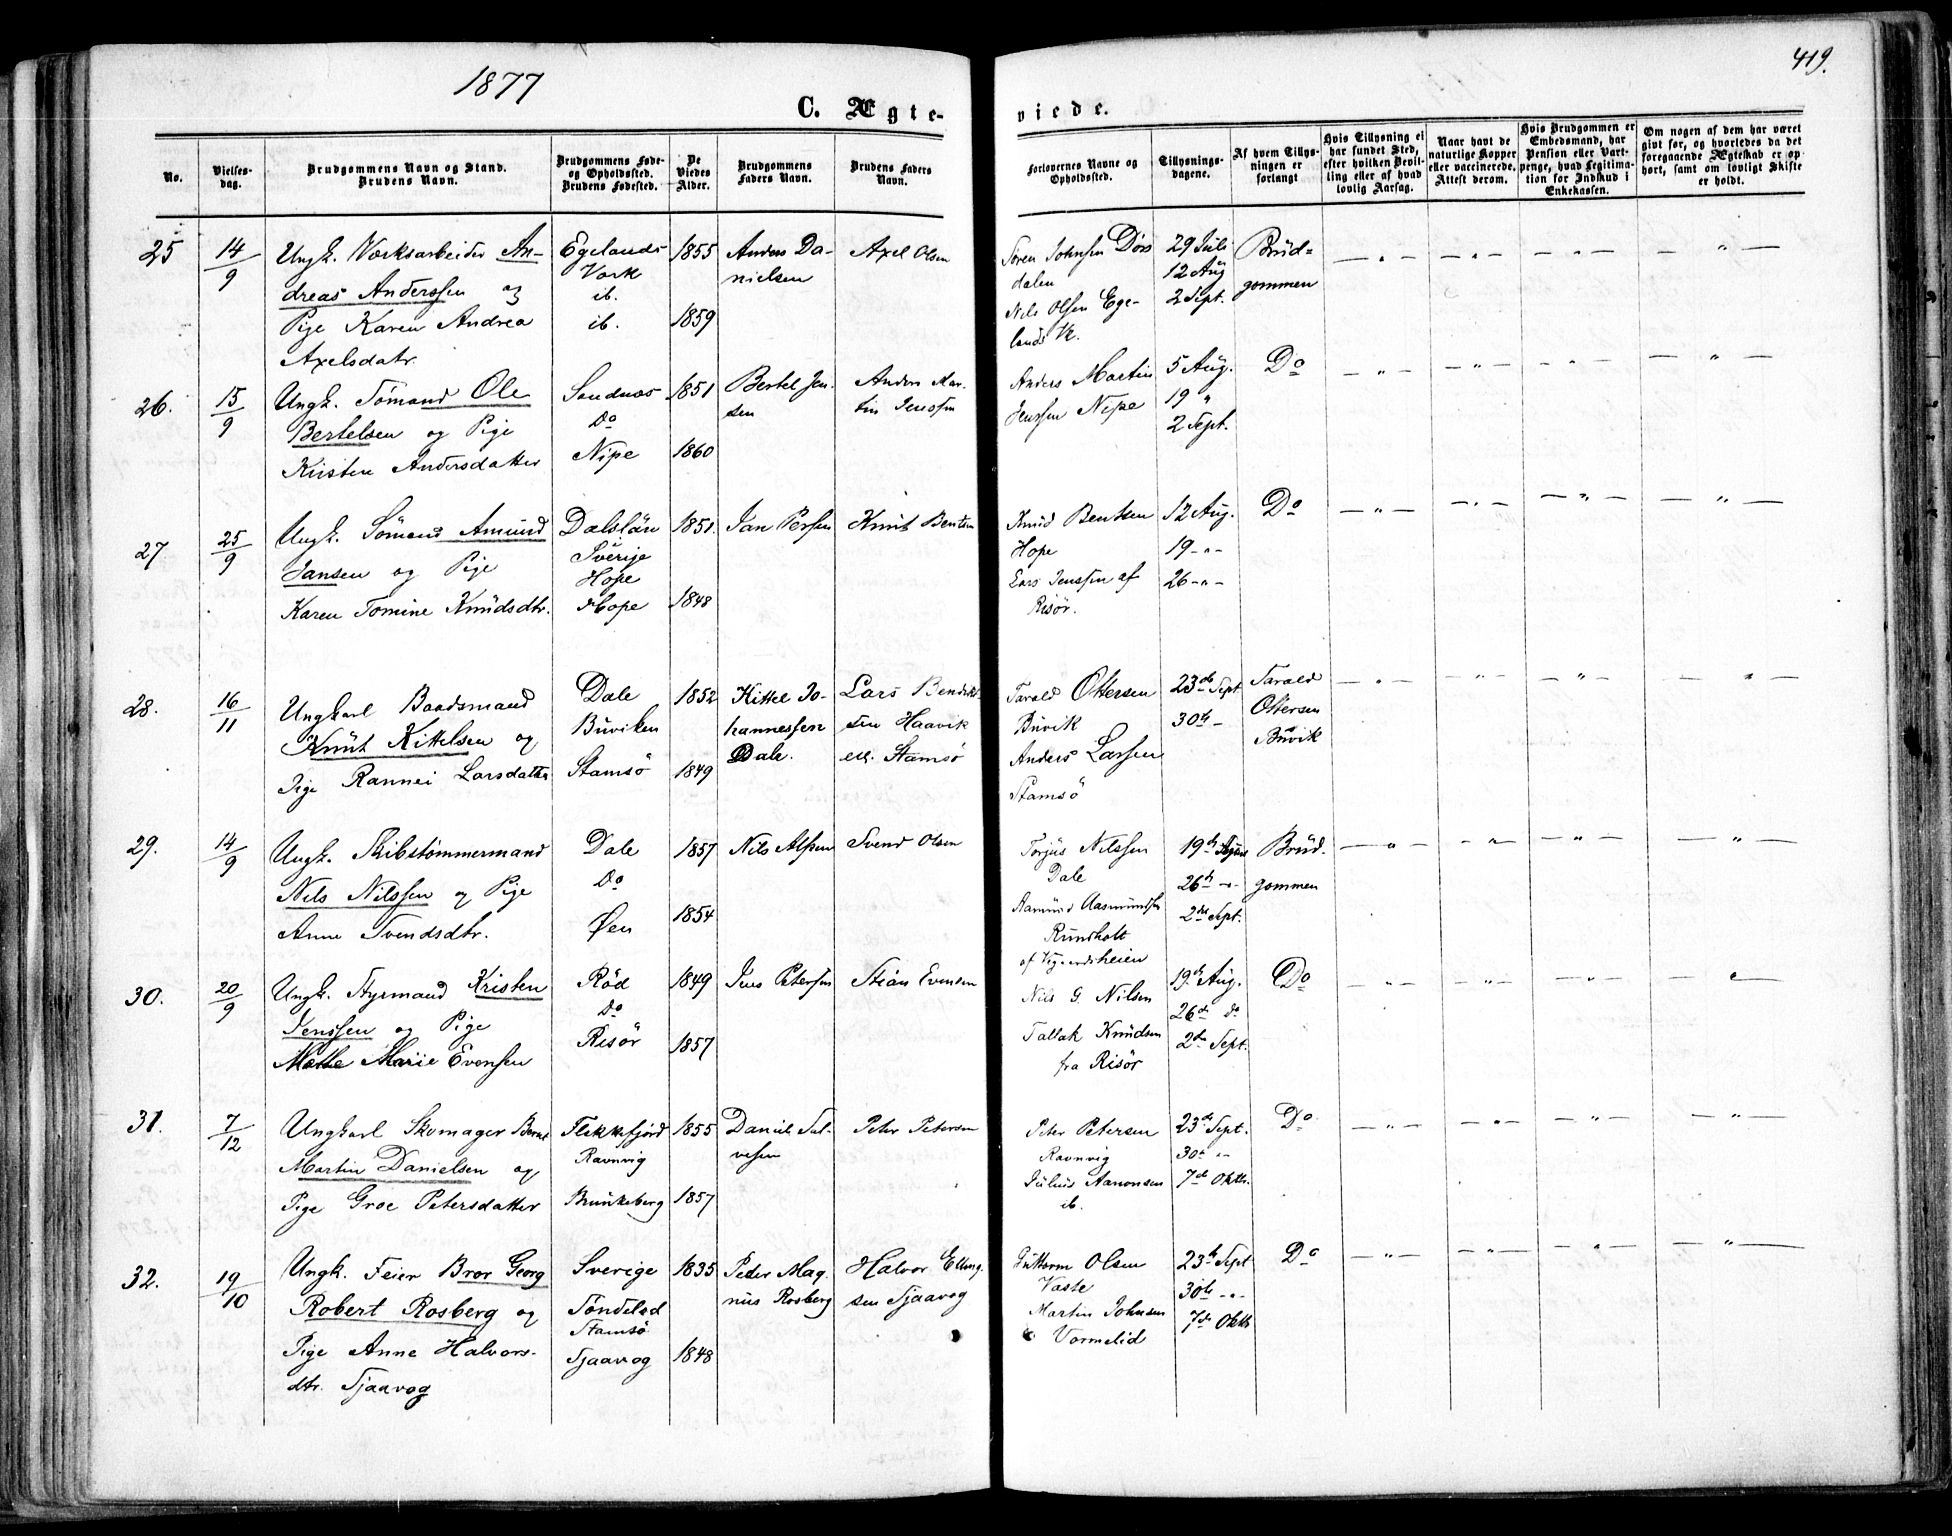 1877
419.
C. Ægte-
viede.
No.
Vielses-
dag.
Brudgommens Navn og Stand.
Brudens Navn.
Brudgommens Føde-
og Opholdsted.
Brudens Fødested.
De
Viedes
Alder.
Brudgommens
Faders Navn.
Brudens Faders
Navn.
Forlovernes Navne og
Opholdsted.
Tillysnings-
dagene.
Af hvem Tillys-
ningen er
forlangt
Hvis Tillysning ei
har fundet Sted,
efter hvilken Bevil-
ling eller af hvad
lovlig Aarsag.
Naar havt de
naturlige Kopper
eller vaccinerede.
Attest derom.
Hvis Brudgommen er
Embedsmand, har
Pension eller Vart-
penge, hvad Legitima-
tion for Indskud i
Enkekassen.
Om nogen af dem har været
givt før, og hvorledes da det
foregaaende Ægteskab er op-
hørt, samt om lovligt Skifte
er holdt.
25
14/9
Ungk. Værksarbeider An-
dreas Anderssen og
Pige Karen Andrea
Axelsdatr.
Egelands
Værk
ib.
ib.
1855
1859
Anders Da-
nielsen
Axel Olsen
Søren Johnsen Dørs
dalen
Nils Olsen Ege-
lands V.
29 Juli
12 Aug
2 Sept.
Brüd-
gommen
26.
15/9
Ungk. Sømand Ole
Bertelsen og Pige
Kristen Andersdatter
Sandnæs
Do
Nipe
1851
1860
Bertel Jen-
sen
Anders Mar-
tin Jenssen
Anders Martin
Jenssen Nipe
5 Aug.
19 "
2 Sept.
Do
27
25/9
Ungk. Sømand Amund
Jansen og Pige
Karen Tomine Knüdsdtr.
Dalslän
Sverige
Hope
Hope
1851.
1848
Jan Persen
Knüt Bentsen
Knüd Bentsen
Hope
Lars Jenssen af
Risör.
12 Aug.
19 - " -
26 - " -
Do
28.
16/11
Ungkarl Baadsmand
Knüt Kittelsen og
Pige Rannei Larsdatter
Dale
Büviken
Stamsö
1852
1849
Kittel Jo-
hannessen
Dale.
Lars Bendikt-
sen Haavik
ell. Stamsö
Tarald Ottersen
Büvik
Anders Larsen
Stamsö
23de Sept
30te -
Tarald
Ottersen
Büvik
29.
14/9
Ungk. Skibstømmermand
Nils Nilssen og Pige
Anne Svendsdtr.
Dale
Do
Øen
1857
1854
Nils Alfsen
Svend Olsen
Torjus Nilssen
Dale
Aamünd Aasmundsen
Ründholt
af Vigeardsheien
19de August
26de - " -
2den Sept.
Brüd-
gommen
30.
20/9
Ungk. Styrmand Kristen
Jenssen og Pige
Mathe Marie Evensen
Röd
Do
Risör
1849
1857
Jens Petersen
Stian Evensen
Nils G. Nilsen
Tallak Knüdsen
fra Risör
19de Aug.
26de do
2den Sept.
Do
31.
7/12
Ungkarl Skomager Bernt
Martin Danielsen og
Pige Groe Petersdatter
Flekkefjord
Ravnvig
Brunkeberg
1855
1857
Daniel Sal-
vesen
Peter Petersen
Peter Petersen
Ravnvig
Julius Aanonsen
ib.
23de Sept.
30te " -
7de Oktbr.
Do
32.
19/10
Ungk. Feier Bror Georg
Robert Rosberg og
Pige Anne Halvors-
dtr. Sjaavog
Sverige
Söndeled
Stamsö
Sjaavog
1835
1848
Peder Mag-
nüs Rosberg
Halvor Elling-
sen Sjaavog
Güttorm Olsen
Vaste
Martin Johnsen
Vormelid
23de Sept
30te - " -
7de Oktb
Do